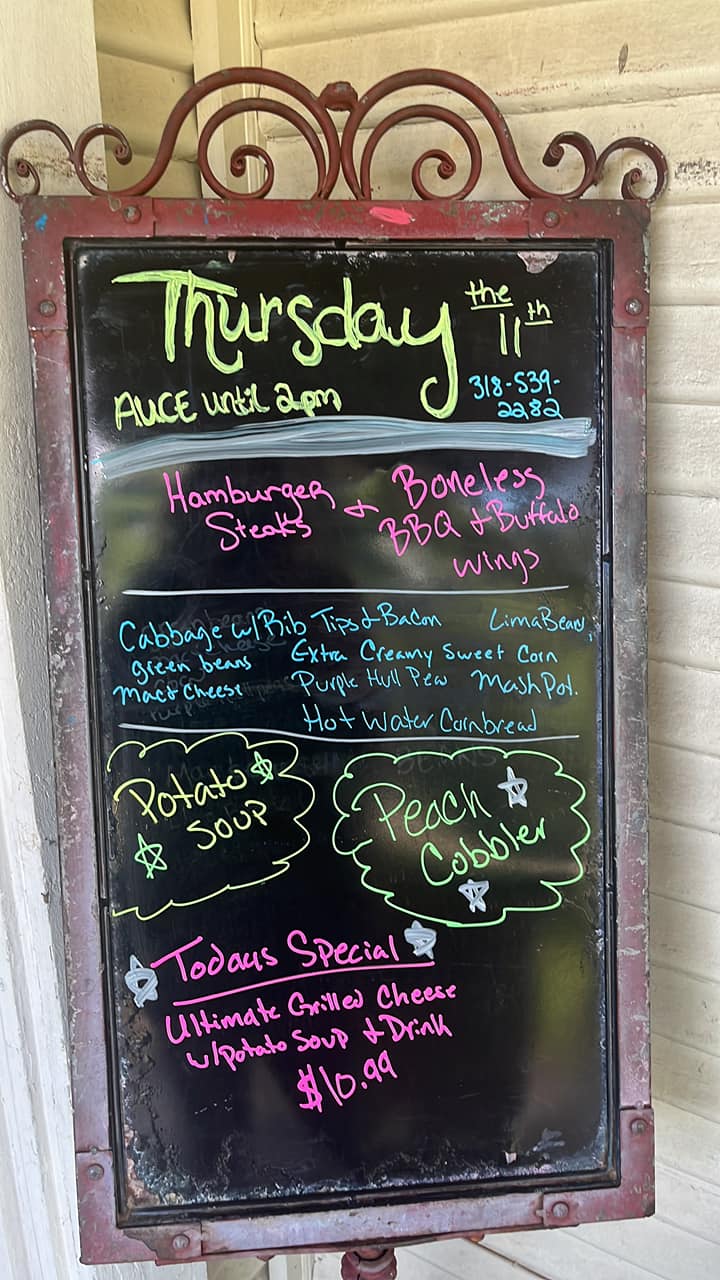 Thursday the 11th
AUCE until 2pm 318-539-
2282
Hamburger & Boneless
Steaks BBQ & Buffalo
wings
Cabbage w/Rib Tips & Bacon Lima Beans,
green beans Extra Creamy Sweet Corn
Mac & Cheese Purple Hull Peas Mash Pot.
Hot Water Cornbread
Potato
Soup
Peach
Cobbler
Todays Special
Ultimate Grilled Cheese
w/potato Soup & Drink
$10.99